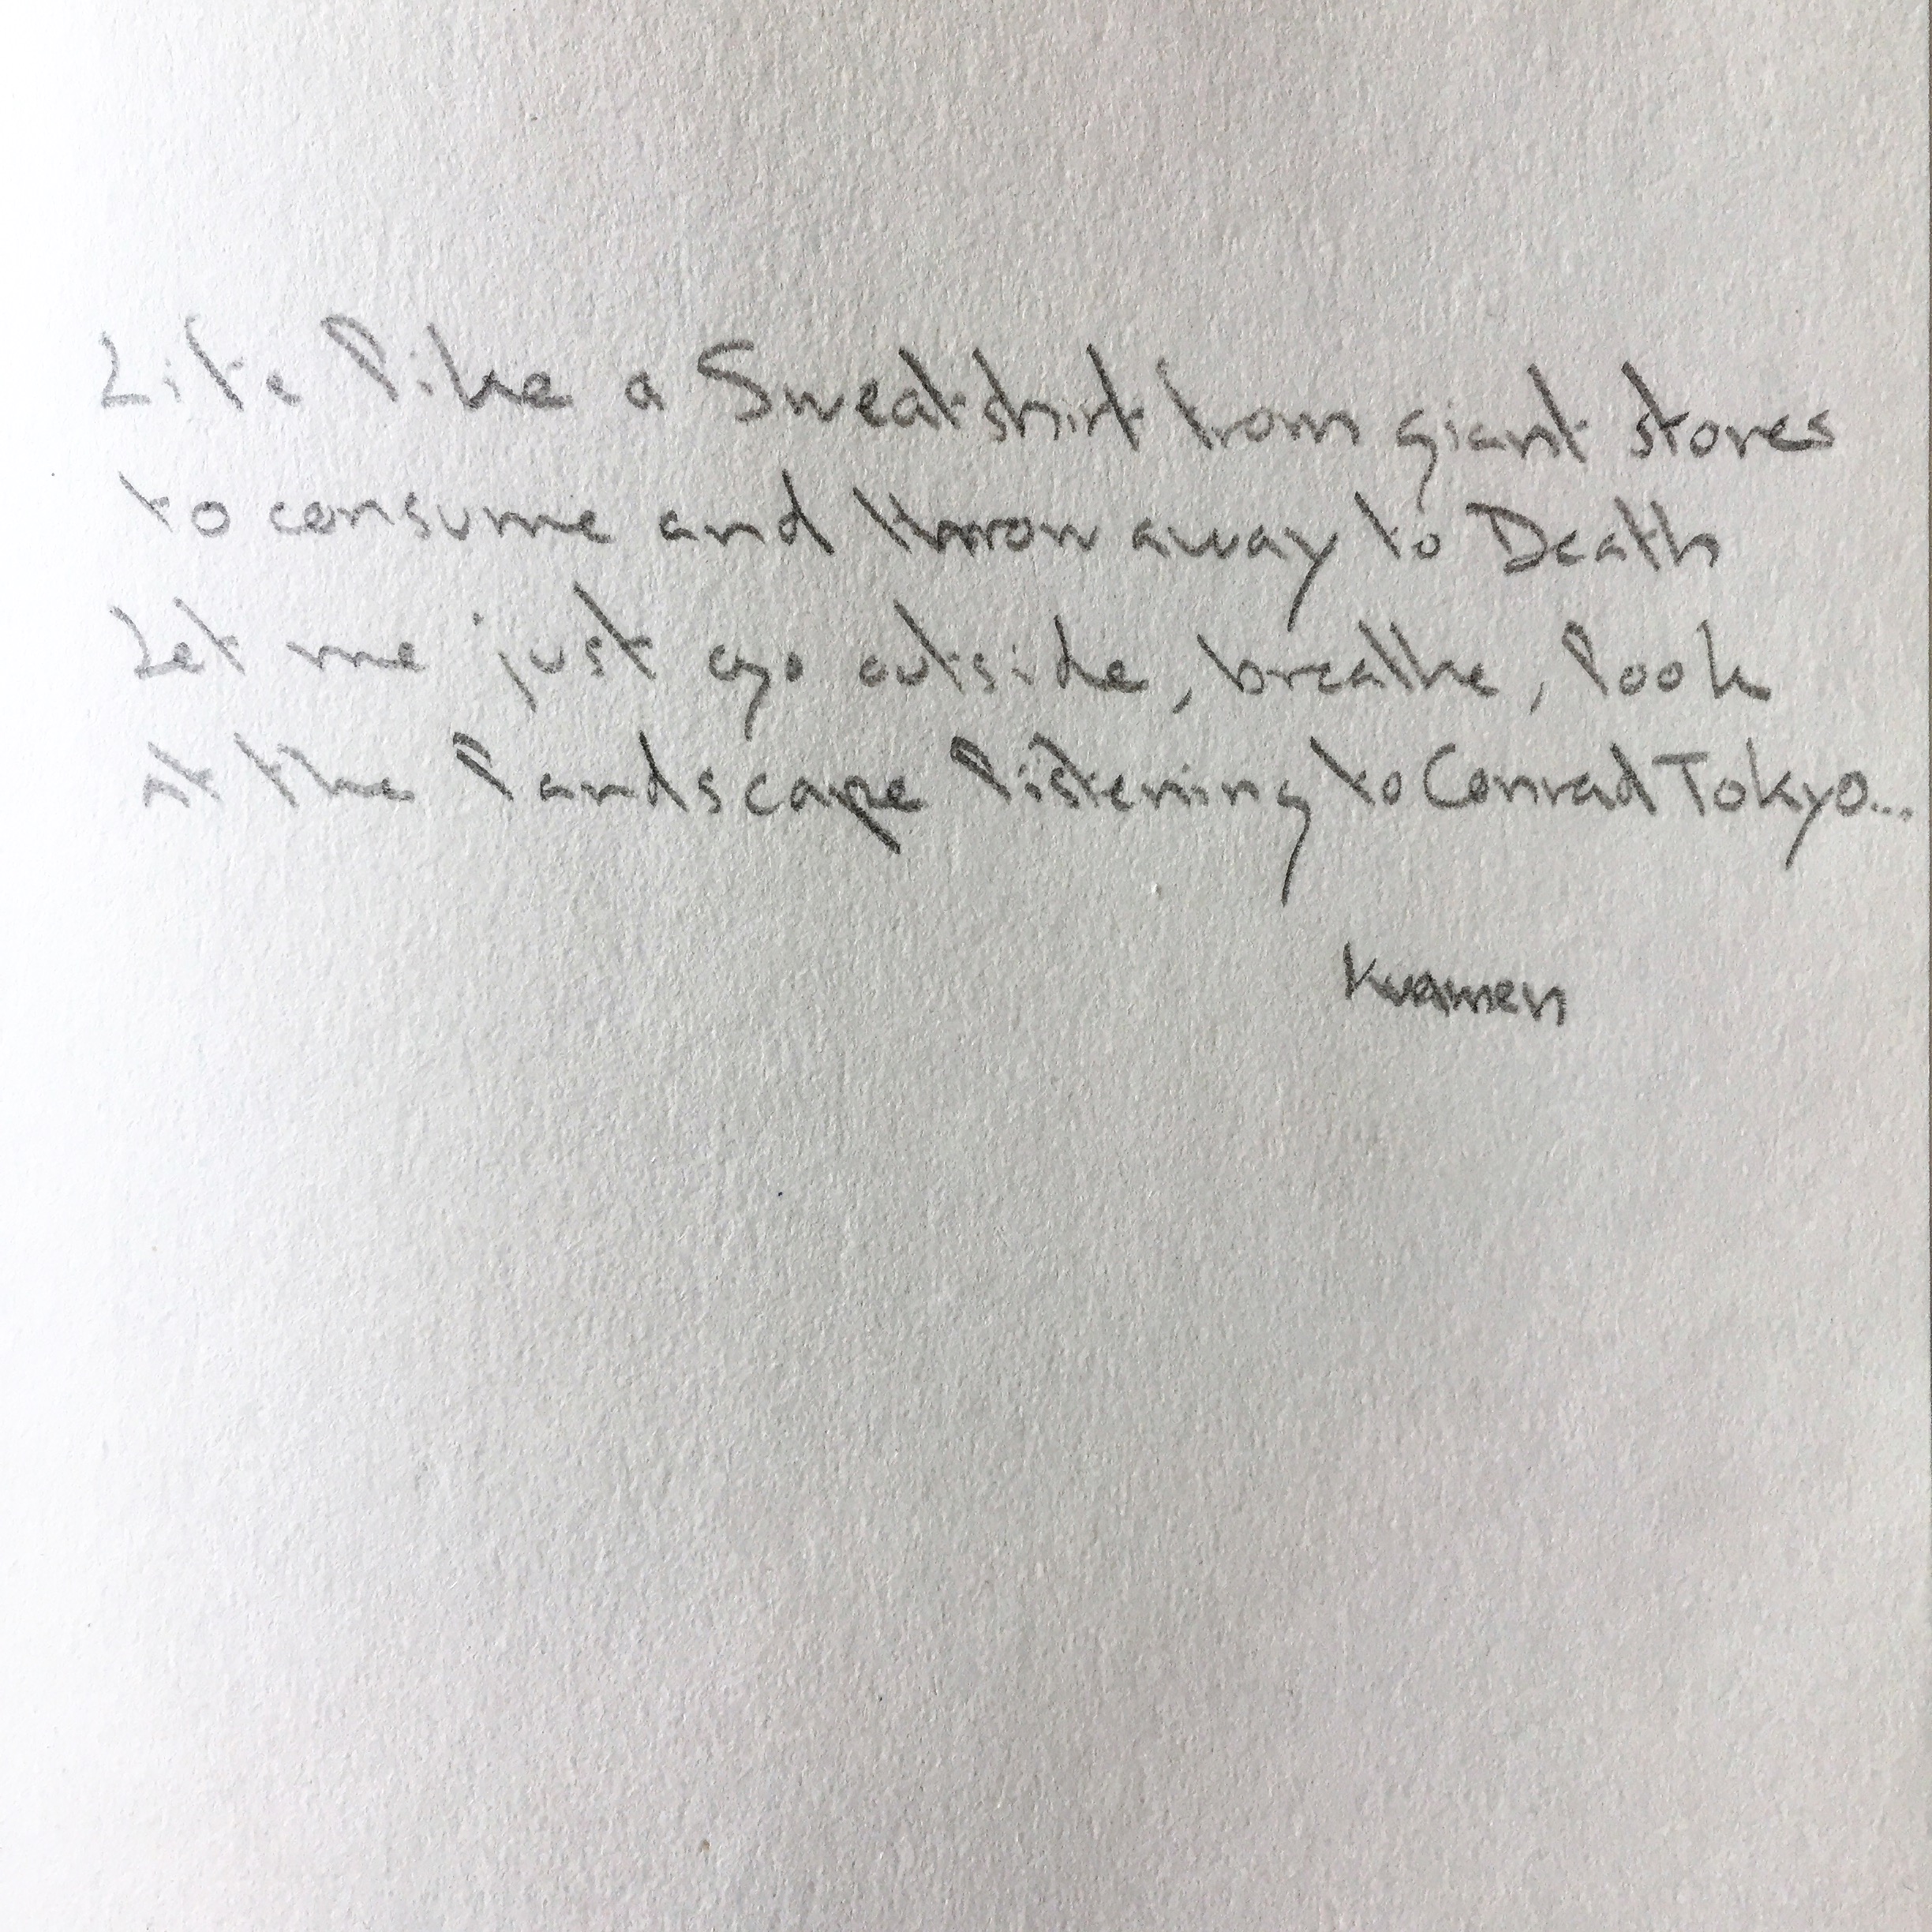 Life like a Sweatshirt from giant stores
to consume and throw away to Death
Let me just go outside, breathe, look
at the landscape listening to Conrad Tokyo...
Kwamen